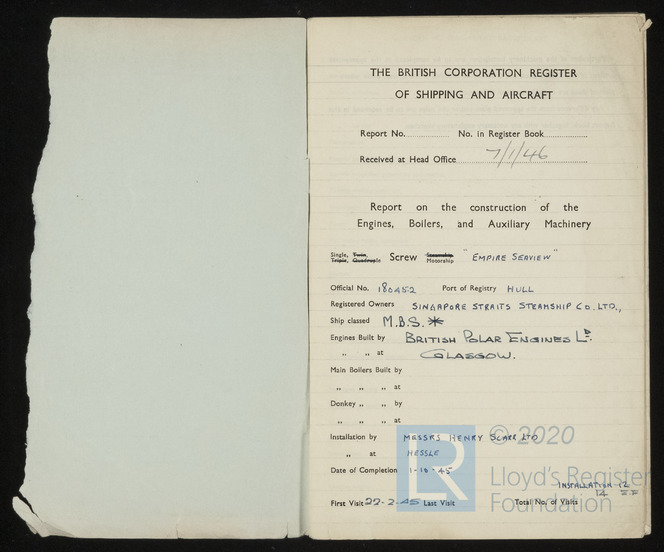 THE BRITISH CORPORATION REGISTER
OF SHIPPING AND AIRCRAFT
Report No. No. in Register Book
Received at Head Office 7/1/46
Report on the construction of the
Engines, Boilers, and Auxiliary Machinery
Single, Twin, Triple, Quadruple Screw Steamship Motorship "EMPIRE SEAVIEW"
Official No. 180452 Port of Registry HULL
Registered Owners SINGAPORE STRAITS STEAMSHIP CO. LTD.,
Ship classed M.B.S. *
Engines Built by BRITISH POLAR ENGINES LD.
„ „ at GLASGOW.
Main Boilers Built by
„ „ „ at
Donkey „ „ by
„ „ „ at
Installation by MESSRS HENRY SCARR LTD
„ at HESSLE
Date of Completion 1-10-45
INSTALLATION 12
14 E.F
First Visit 22-2-45 Last Visit Total No. of Visits
LR © 2020
Lloyd's Register
Foundation